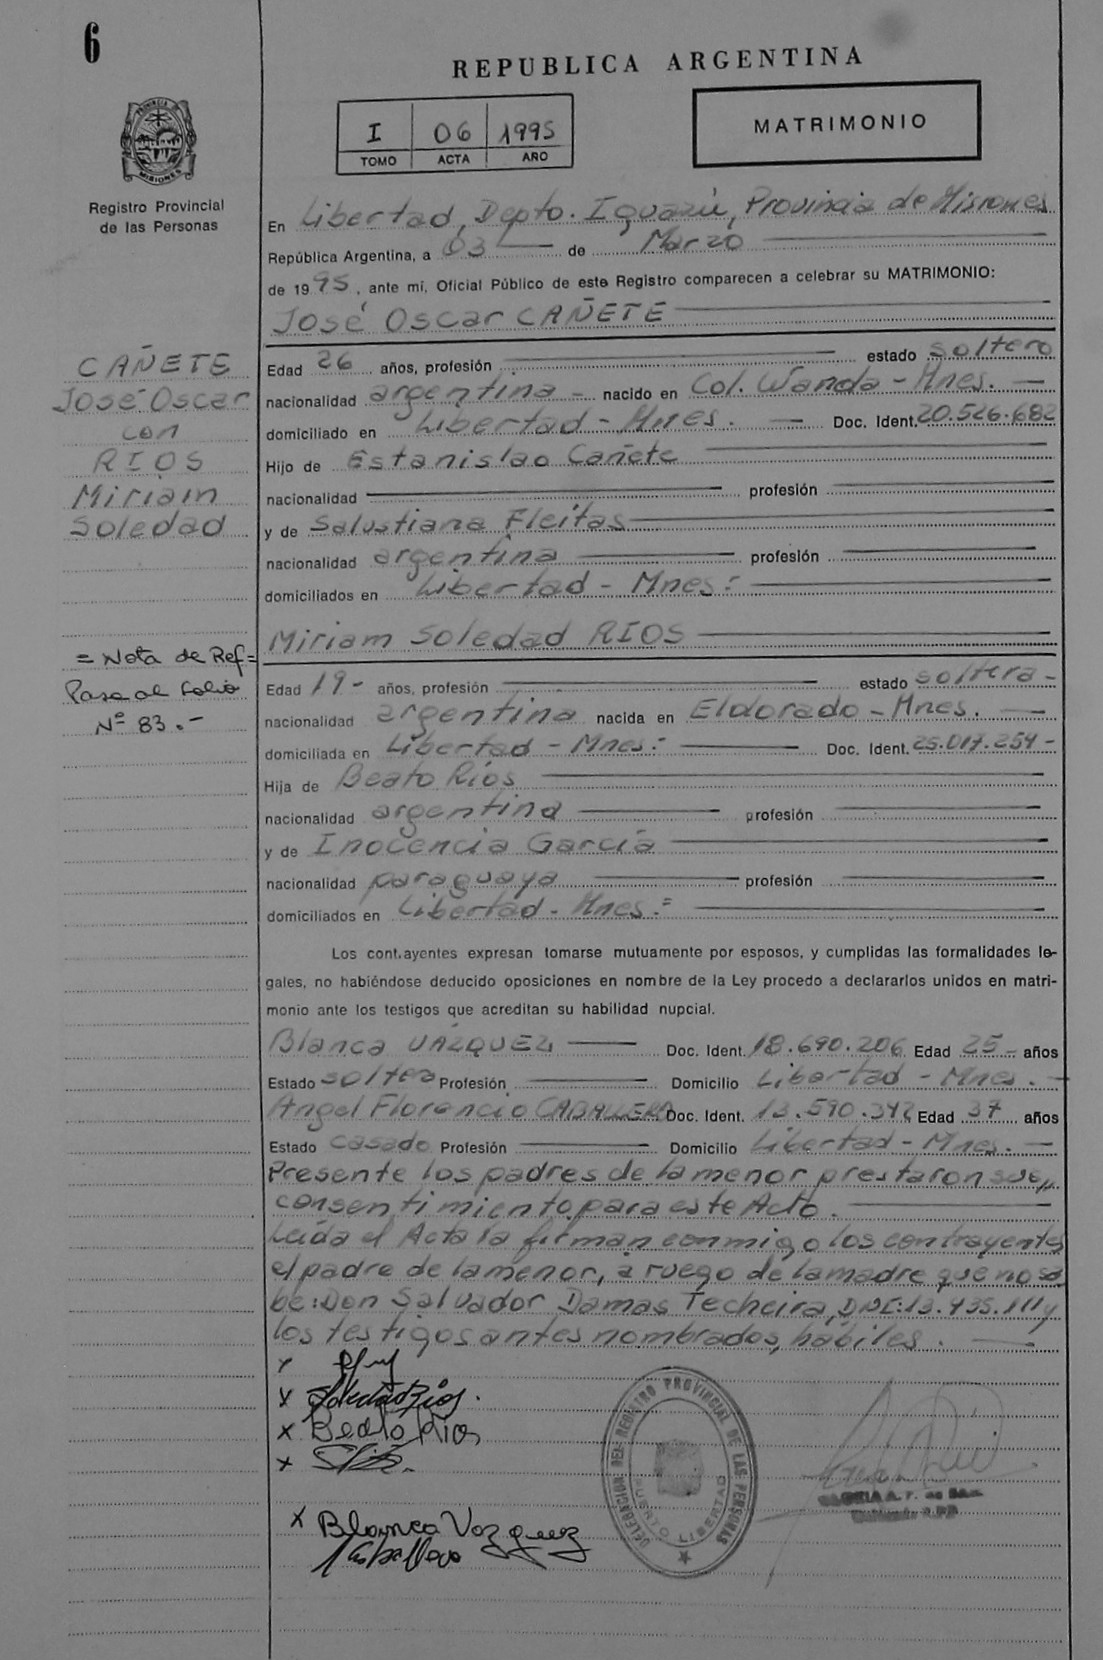 6
REPUBLICA ARGENTINA
I 06 1995
TOMO ACTA AÑO
MATRIMONIO
PROVINCIA DE MISIONES
Registro Provincial
de las Personas
En Libertad, Depto. Iguazú, Provincia de Misiones
República Argentina, a 03 de Marzo
de 1995, ante mí, Oficial Público de este Registro comparecen a celebrar su MATRIMONIO:
José Oscar CAÑETE
CAÑETE
José Oscar
con
RIOS
Miriam
Soledad
Edad 26 años, profesión estado soltero
nacionalidad argentina - nacido en Col. Wanda - Mnes.
domiciliado en Libertad - Mnes. Doc. Ident. 20.526.682
Hijo de Estanislao Cañete
nacionalidad profesión
y de Salustiana Fleitas
nacionalidad argentina profesión
domiciliados en Libertad - Mnes.=
Miriam Soledad RIOS
= Nota de Ref=
Pasa al Folio
Nº 83.-
Edad 19- años, profesión estado soltera-
nacionalidad argentina nacida en Eldorado - Mnes.
domiciliada en Libertad - Mnes.- Doc. Ident. 25.017.254-
Hija de Beato Ríos
nacionalidad argentina profesión
y de Inocencia García
nacionalidad paraguaya profesión
domiciliados en Libertad - Mnes.=
Los contrayentes expresan tomarse mutuamente por esposos, y cumplidas las formalidades le-
gales, no habiéndose deducido oposiciones en nombre de la Ley procedo a declararlos unidos en matri-
monio ante los testigos que acreditan su habilidad nupcial.
Blanca VÁZQUEZ Doc. Ident. 18.690.206 Edad 25- años
Estado soltera Profesión Domicilio Libertad - Mnes.
Angel Florencio CABALLERO Doc. Ident. 13.590.342 Edad 37 años
Estado casado Profesión Domicilio Libertad - Mnes.
Presente los padres de la menor prestaron su
consentimiento para este Acto.
Leída el Acta la firman conmigo los contrayentes
el padre de la menor, a ruego de la madre que no sa
be: Don Salvador Damas Techeira, DNI: 13.435.111 y
los testigos antes nombrados, hábiles.
x
x Soledad Rios.
x Beato Rios
x
x Blanca Vazquez
Caballero
DELEGACION DEL REGISTRO PROVINCIAL DE LAS PERSONAS
PUERTO LIBERTAD